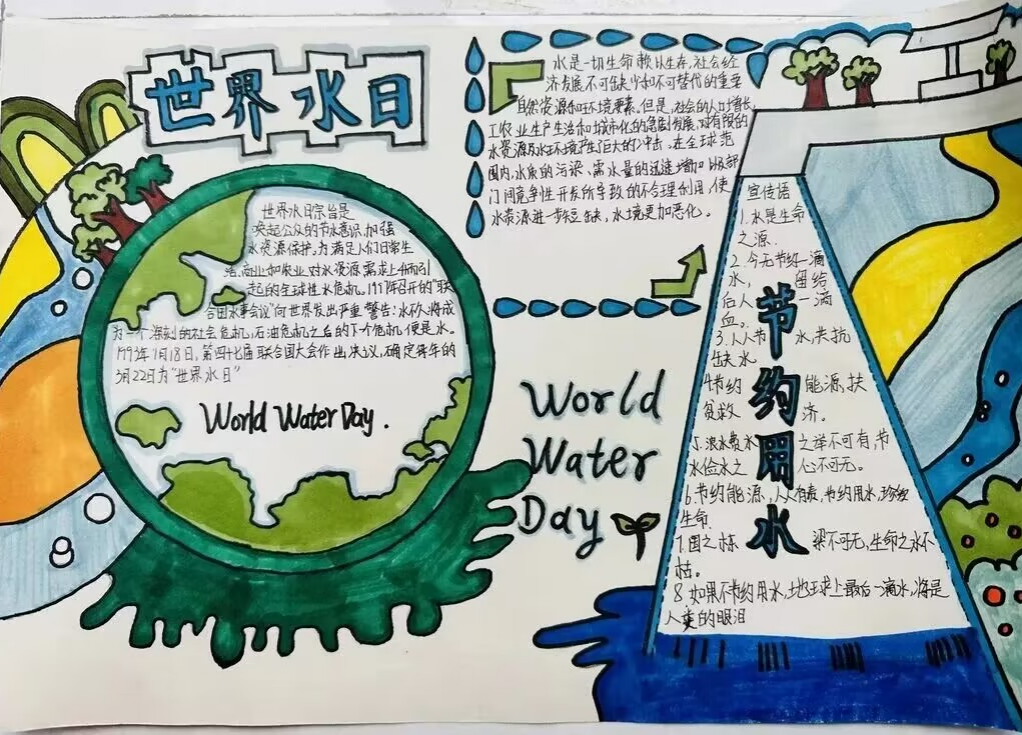 世界水日
世界水日宗旨是
唤起公众的节水意识,加强
水资源保护。为满足人们日常生
活、商业和农业对水资源需求
起的全球性水危机。1977年召开的"联
合国水事会议"向世界发出严重警告:水不久将成
为一个深刻的社会危机,石油危机之后的下个危机便是水。
1993年1月18日,第四十七届联合国大会作出决议,确定每年的
3月22日为"世界水日"
World Water Day.
水是一切生命赖以生存,社会经
济发展不可缺少和不可替代的重要
自然资源和环境要素。但是,社会的人口增长,
工农业生产生活和城市化的急剧发展,对有限的
水资源及水环境产生了巨大的冲击。在全球范
围内,水质的污染、需水量的迅速增加以及部
门间竞争性开发所导致的不合理利用,使
水资源进一步短缺,水境更加恶化。
World
Water
Day
节约用水
宣传语
1.水是生命
之源.
2.今天节约一滴
水, 留给
后人一滴
血。
3.人人节水,共抗
缺水
4.节约能源,扶
贫救济。
5.浪费水之举不可有,节
水俭水之心不可无。
6.节约能源,人人有责,节约用水,珍惜
生命.
7.国之栋梁不可无,生命之水不
枯。
8.如果不节约用水,地球上最后一滴水,将是
人类的眼泪